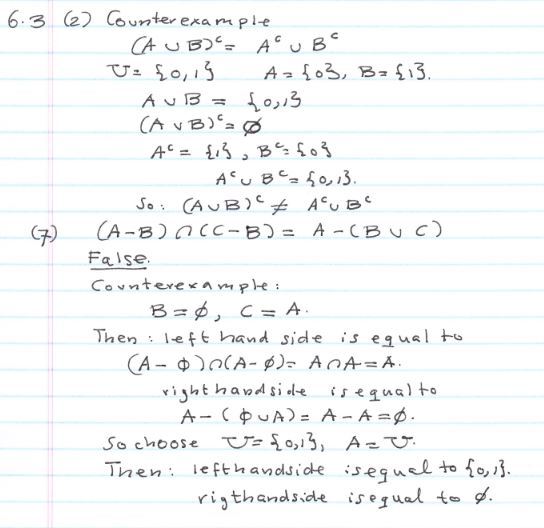 6.3 (2) Counterexample
(A ∪ B)ᶜ = Aᶜ ∪ Bᶜ
U = {0,1}   A = {0}, B = {1}.
A ∪ B = {0,1}
(A ∪ B)ᶜ = ∅
Aᶜ = {1}, Bᶜ = {0}
Aᶜ ∪ Bᶜ = {0,1}.
So: (A ∪ B)ᶜ ≠ Aᶜ ∪ Bᶜ
(7) (A-B) ∩ (C-B) = A - (B ∪ C)
False.
Counterexample:
B = ∅, C = A.
Then: left hand side is equal to
(A - ∅) ∩ (A - ∅) = A ∩ A = A.
right handside is equal to
A - (∅ ∪ A) = A - A = ∅.
So choose U = {0,1}, A = U.
Then: lefthandside is equal to {0,1}.
rigthandside is equal to ∅.